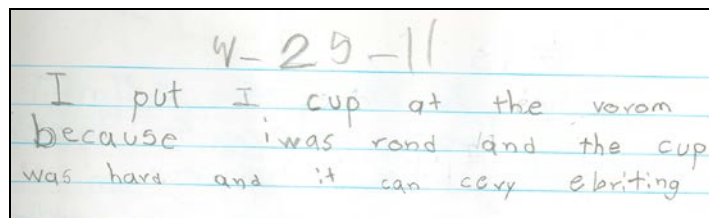 4-25-11
I put I cup at the vorom
because i was rond and the cup
was hard and it can cery ebriting